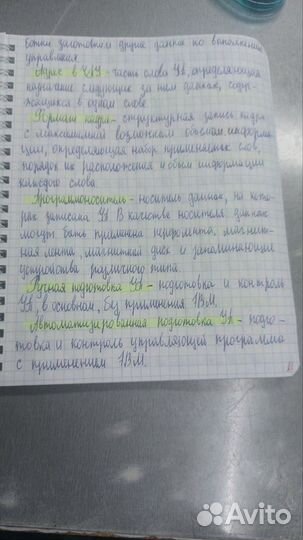 ботки заготовки и другие данные по выполнению
управления
Адрес в УП - часть слова УП, определяющая
назначение следующих за ним данных, содер-
жащихся в одном слове
Формат кадра - структурная запись кадра
с максимальным возможным объёмом информа-
ции, определяющая набор применяемых слов,
порядок их расположения и объём информации
каждого слова
Программоноситель - носитель данных, на кото-
рых записана УП. В качестве носителя данных
могут быть применена перфолента, магнит-
ная лента, магнитный диск и запоминающие
устройства различного типа.
Ручная подготовка УП - подготовка и контроль
УП в основном, без применения ЭВМ.
Автоматизированная подготовка УП - подго-
товка и контроль управляющей программы
с применением ЭВМ.
Avito